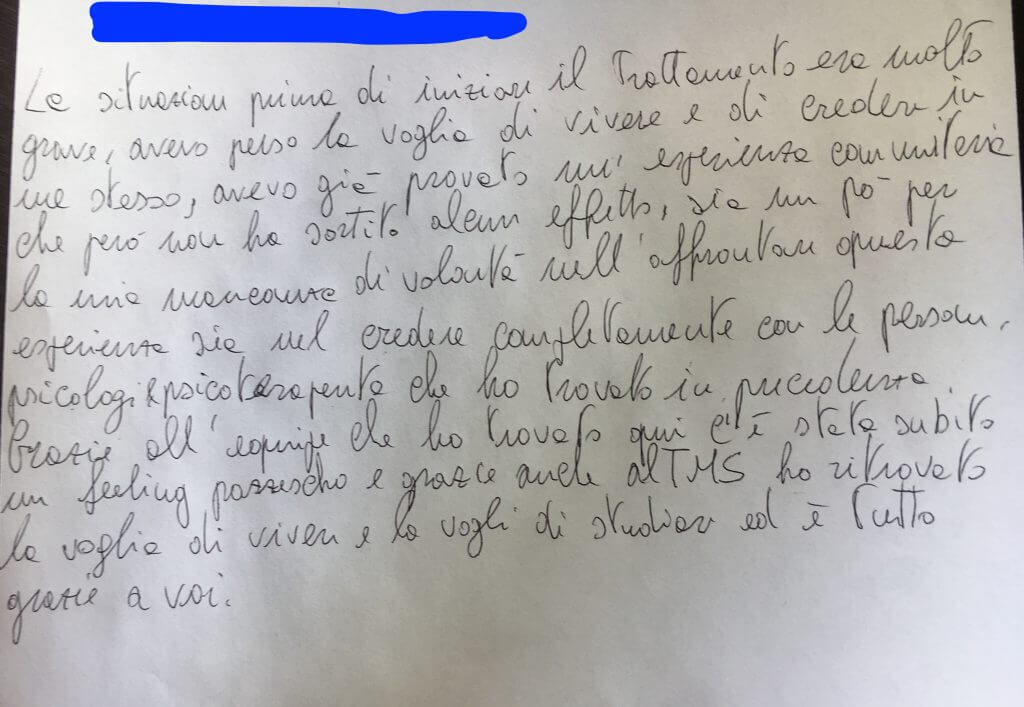 La situazione prima di iniziare il trattamento era molto
grave, avevo perso la voglia di vivere e di credere in
me stesso, avevo già provato un'esperienza comunitaria
che però non ha sortito alcun effetto, sia un pò per
la mia mancanza di volontà nell'affrontare questa
esperienza sia nel credere completamente con le persone,
psicologi & psicoterapenta che ho trovato in precedenza.
Grazie all'equipe che ho trovato qui c'è stata subito
un feeling pazzescho e grazie anche al TMS ho ritrovato
la voglia di vivere e la vogli di studiare ed è tutto
grazie a voi.